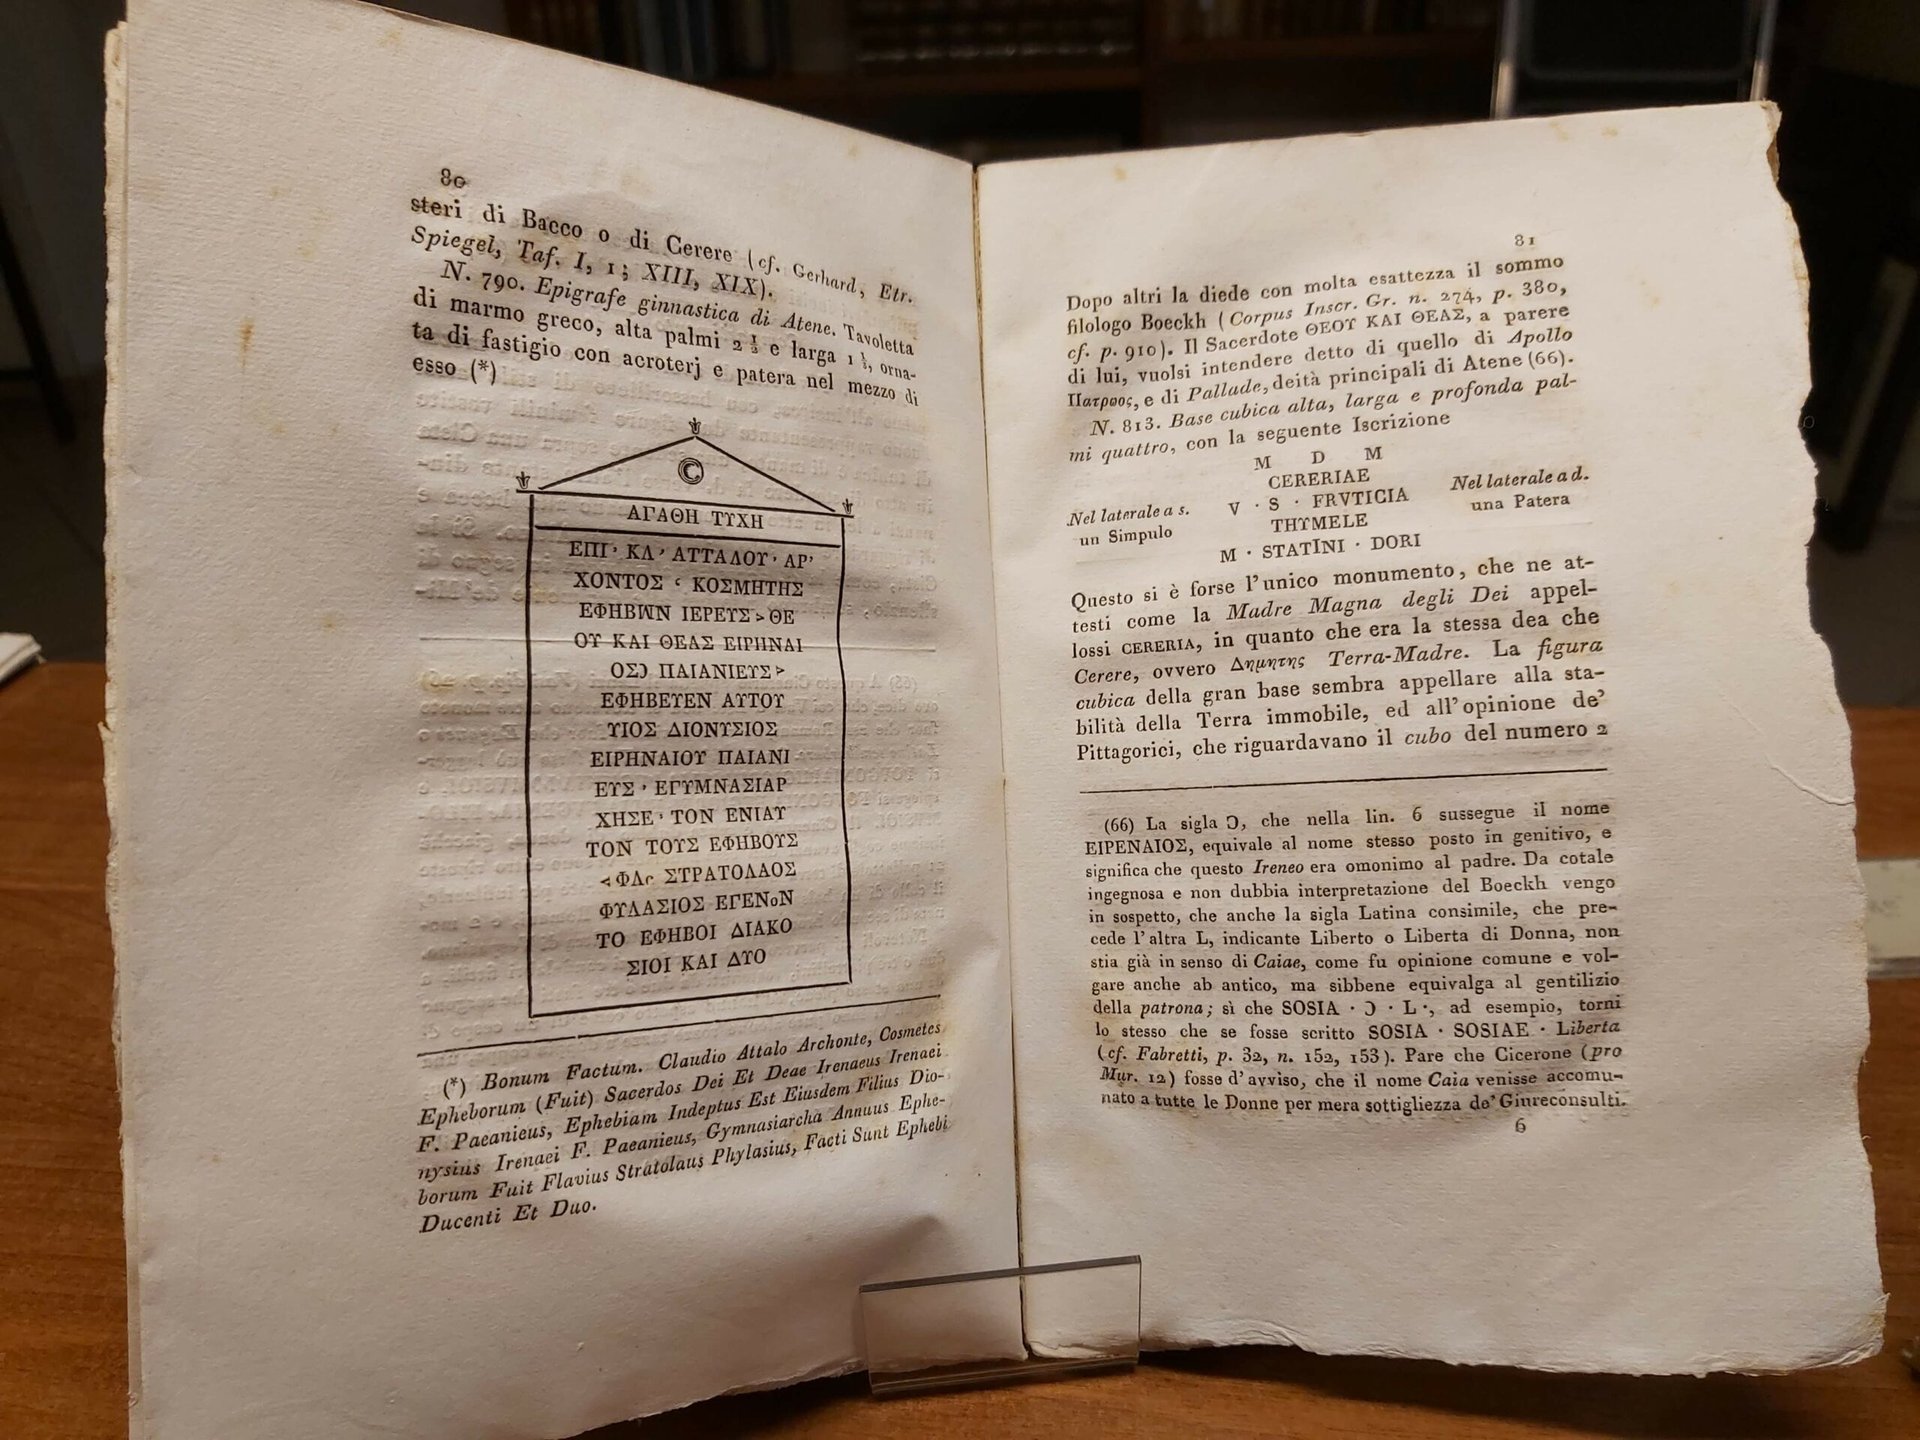 80
steri di Bacco o di Cerere (cf. Gerhard, Etr.
Spiegel, Taf. I, 1; XIII, XIX).
N. 790. Epigrafe ginnastica di Atene. Tavoletta
di marmo greco, alta palmi 2 ½ e larga 1 ½, orna-
ta di fastigio con acroterj e patera nel mezzo di
esso (*)
ΑΓΑΘΗ ΤΥΧΗ
ΕΠΙ · ΚΛ · ΑΤΤΑΛΟΥ · ΑΡ ·
ΧΟΝΤΟΣ ς ΚΟΣΜΗΤΗΣ
ΕΦΗΒΩΝ ΙΕΡΕΥΣ > ΘΕ
ΟΥ ΚΑΙ ΘΕΑΣ ΕΙΡΗΝΑΙ
ΟΣϽ ΠΑΙΑΝΙΕΥΣ >
ΕΦΗΒΕΥΕΝ ΑΥΤΟΥ
ΥΙΟΣ ΔΙΟΝΥΣΙΟΣ
ΕΙΡΗΝΑΙΟΥ ΠΑΙΑΝΙ
ΕΥΣ · ΕΓΥΜΝΑΣΙΑΡ
ΧΗΣΕ · ΤΟΝ ΕΝΙΑΥ
ΤΟΝ ΤΟΥΣ ΕΦΗΒΟΥΣ
<ΦΛς ΣΤΡΑΤΟΛΑΟΣ
ΦΥΛΑΣΙΟΣ ΕΓΕΝοΝ
ΤΟ ΕΦΗΒΟΙ ΔΙΑΚΟ
ΣΙΟΙ ΚΑΙ ΔΥΟ
(*) Bonum Factum. Claudio Attalo Archonte, Cosmetes
Epheborum (Fuit) Sacerdos Dei Et Deae Irenaeus Irenaei
F. Paeanieus, Ephebiam Indeptus Est Eiusdem Filius Dio-
nysius Irenaei F. Paeanieus, Gymnasiarcha Annuus Ephe-
borum Fuit Flavius Stratolaus Phylasius, Facti Sunt Ephebi
Ducenti Et Duo.
81
Dopo altri la diede con molta esattezza il sommo
filologo Boeckh (Corpus Inscr. Gr. n. 274, p. 380,
cf. p. 910). Il Sacerdote ΘΕΟΥ ΚΑΙ ΘΕΑΣ, a parere
di lui, vuolsi intendere detto di quello di Apollo
Πατρῳος, e di Pallade, deità principali di Atene (66).
N. 813. Base cubica alta, larga e profonda pal-
mi quattro, con la seguente Iscrizione
M D M
CERERIAE
Nel laterale a s. V · S · FRVTICIA Nel laterale a d.
un Simpulo THYMELE una Patera
M · STATINI · DORI
Questo si è forse l'unico monumento, che ne at-
testi come la Madre Magna degli Dei appel-
lossi CERERIA, in quanto che era la stessa dea che
Cerere, ovvero Δημητης Terra-Madre. La figura
cubica della gran base sembra appellare alla sta-
bilità della Terra immobile, ed all'opinione de'
Pittagorici, che riguardavano il cubo del numero 2
(66) La sigla Ͻ, che nella lin. 6 sussegue il nome
ΕΙΡΕΝΑΙΟΣ, equivale al nome stesso posto in genitivo, e
significa che questo Ireneo era omonimo al padre. Da cotale
ingegnosa e non dubbia interpretazione del Boeckh vengo
in sospetto, che anche la sigla Latina consimile, che pre-
cede l'altra L, indicante Liberto o Liberta di Donna, non
stia già in senso di Caiae, come fu opinione comune e vol-
gare anche ab antico, ma sibbene equivalga al gentilizio
della patrona; sì che SOSIA · Ͻ · L ·, ad esempio, torni
lo stesso che se fosse scritto SOSIA · SOSIAE · Liberta
(cf. Fabretti, p. 32, n. 152, 153). Pare che Cicerone (pro
Mur. 12) fosse d'avviso, che il nome Caia venisse accomu-
nato a tutte le Donne per mera sottigliezza de' Giureconsulti.
6